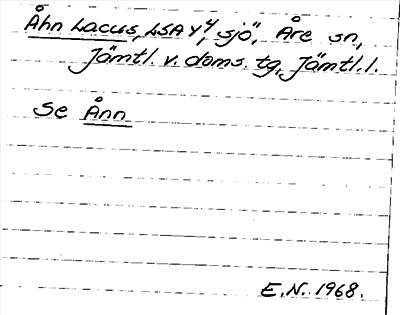 Åhn Lacus, LSA Y4, sjö, Åre sn,
Jämtl. v. doms. tg, Jämtl. l.
Se Ånn
E.N. 1968.